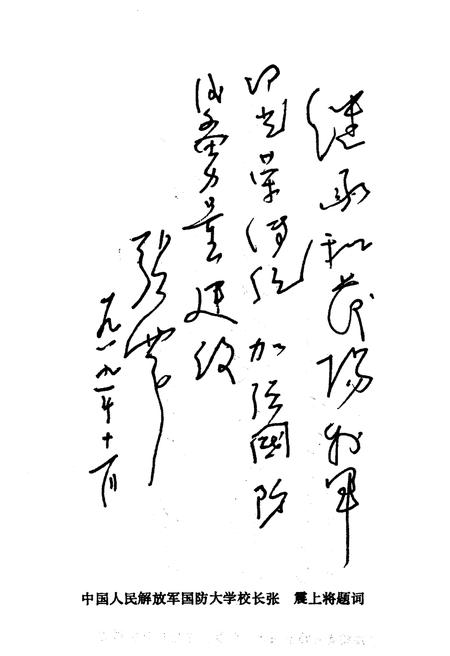 继承和发扬我军
的光荣传统 加强国防
后备力量建设
张震
一九九一年十一月
中国人民解放军国防大学校长张 震上将题词